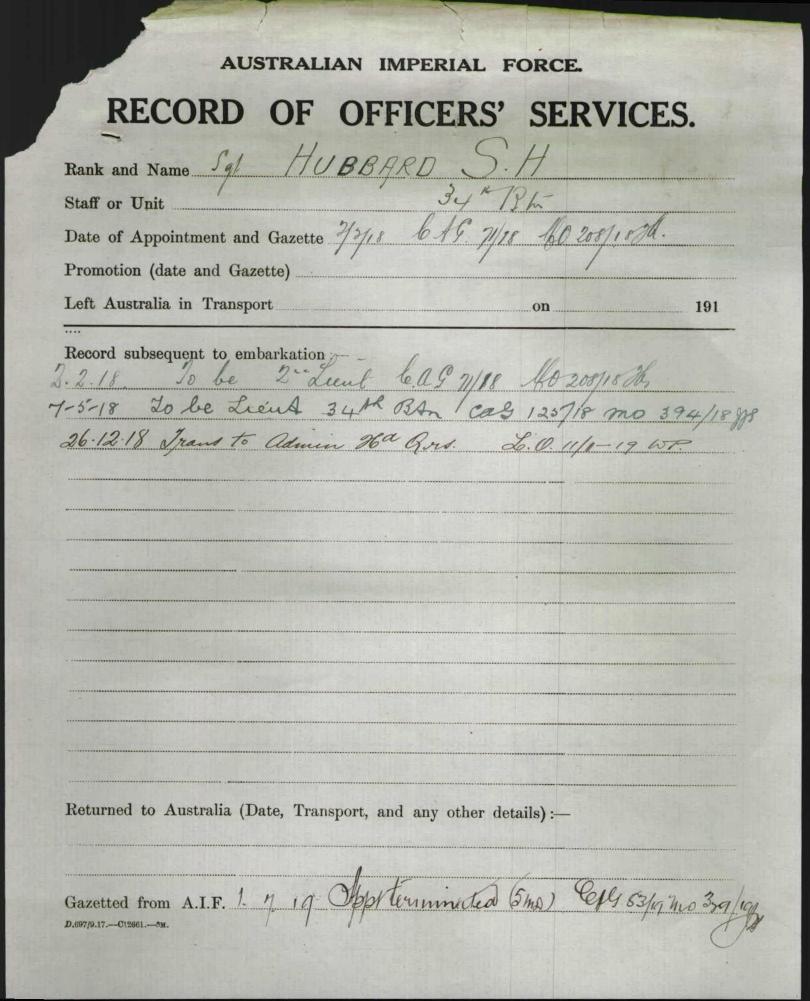 AUSTRALIAN IMPERIAL FORCE.
RECORD OF OFFICERS' SERVICES.
Rank and Name Sgt HUBBARD S.H
Staff or Unit 34th Btn
Date of Appointment and Gazette 2/2/18 CAG 71/18 MO 208/18
Promotion (date and Gazette)
Left Australia in Transport on 191
Record subsequent to embarkation :—
2.2.18. To be 2nd Lieut CAG 71/18 MO 208/18
7-5-18 To be Lieut 34th Btn CAG 125/18 MO 394/18
26.12.18 Trans to Admin Hd Qrs. L.O. 11/8-19 WP.
Returned to Australia (Date, Transport, and any other details) :—
Gazetted from A.I.F. 1 7 19 Appt terminated (5MD) CAG 83/19 MO 329/19
D.697/9.17.—C12661.—5M.